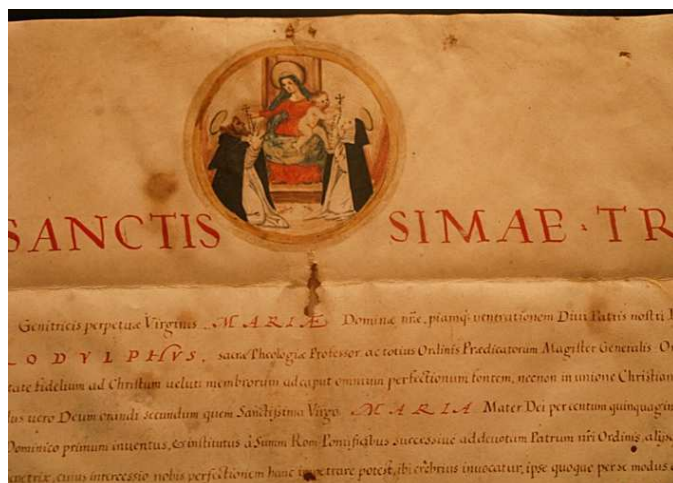 SANCTIS SIMAE · TR
Genitricis perpetuæ Virginis MARIÆ Dominæ nr̃æ, piamq; venerationem Divi Patris nostri
LODVLPHVS, sacræ Theologiæ Professor ac totius Ordinis Prædicatorum Magister Generalis. O
tate fidelium ad Christum veluti membrorum ad caput omnium perfectionum fontem, necnon in unione Christian
lus vero Deum orandi secundum quem Sanctissima Virgo MARIA Mater Dei per centum quinquagin
Dominico primum inventus, & institutus à Summ Rom Pontificibus successive ad devotam Patrum nr̃i Ordinis, alijs
petrix, cuius intercessio nobis perfectionem hanc impetrare potest, ibi crebrius invocatur, ipse quoque per se modus